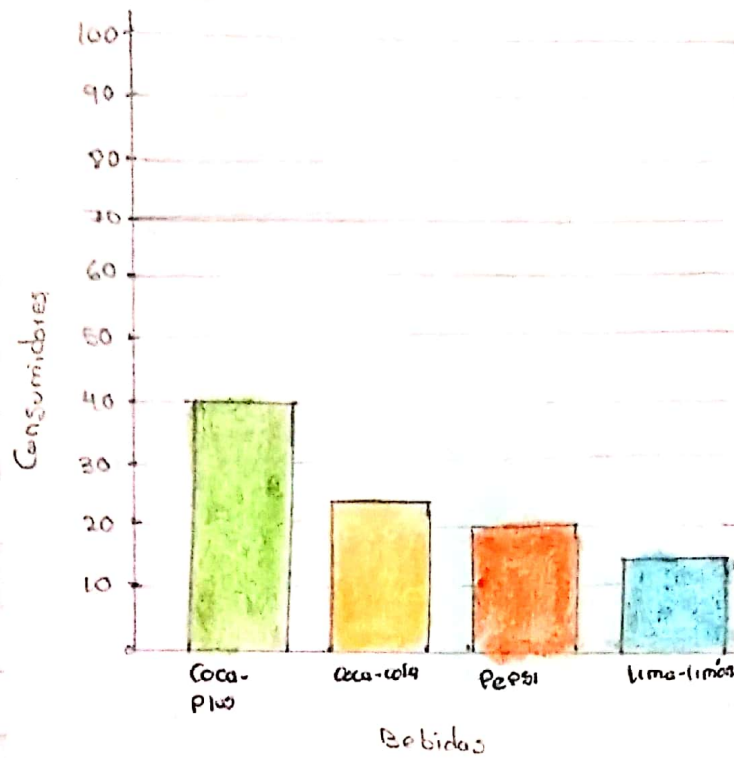 100
90
80
70
60
50
40
30
20
10
Consumidores
Coca-
Plus
Coca-cola
Pepsi
Lima-limón
Bebidas